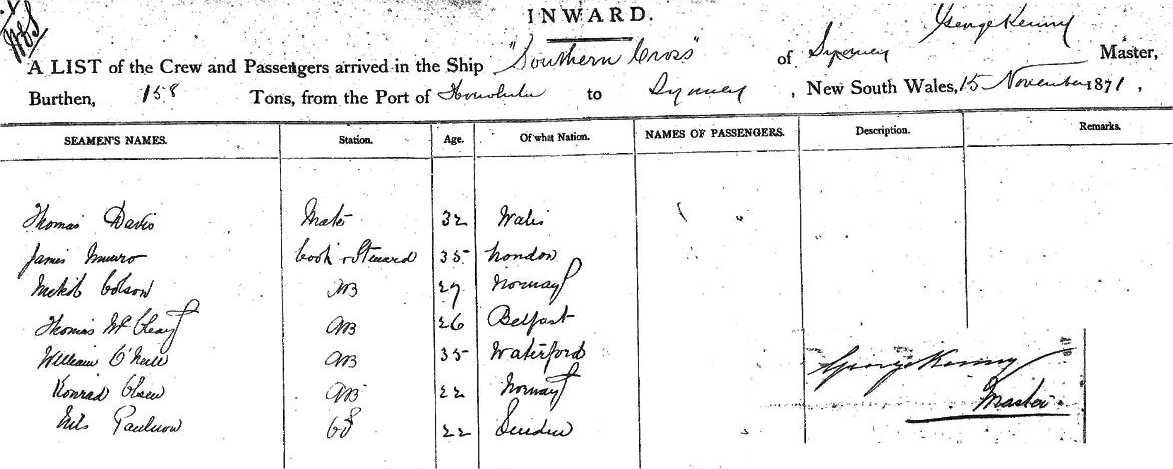 INWARD.
George Kenny
A LIST of the Crew and Passengers arrived in the Ship "Southern Cross" of Sydney Master,
Burthen, 158 Tons, from the Port of Honolulu to Sydney, New South Wales, 15 November 1871,
SEAMEN'S NAMES. Station. Age. Of what Nation. NAMES OF PASSENGERS. Description. Remarks.
Thomas Davis Mate 32 Wales
James Munro Cook & Steward 35 London
Colson AB 29 Norway
Thomas McCleary AB 26 Belfast
William O'Neill AB 35 Waterford
Konrad Olsen AB 22 Norway
Nils Paulson 22
George Kenny
Master